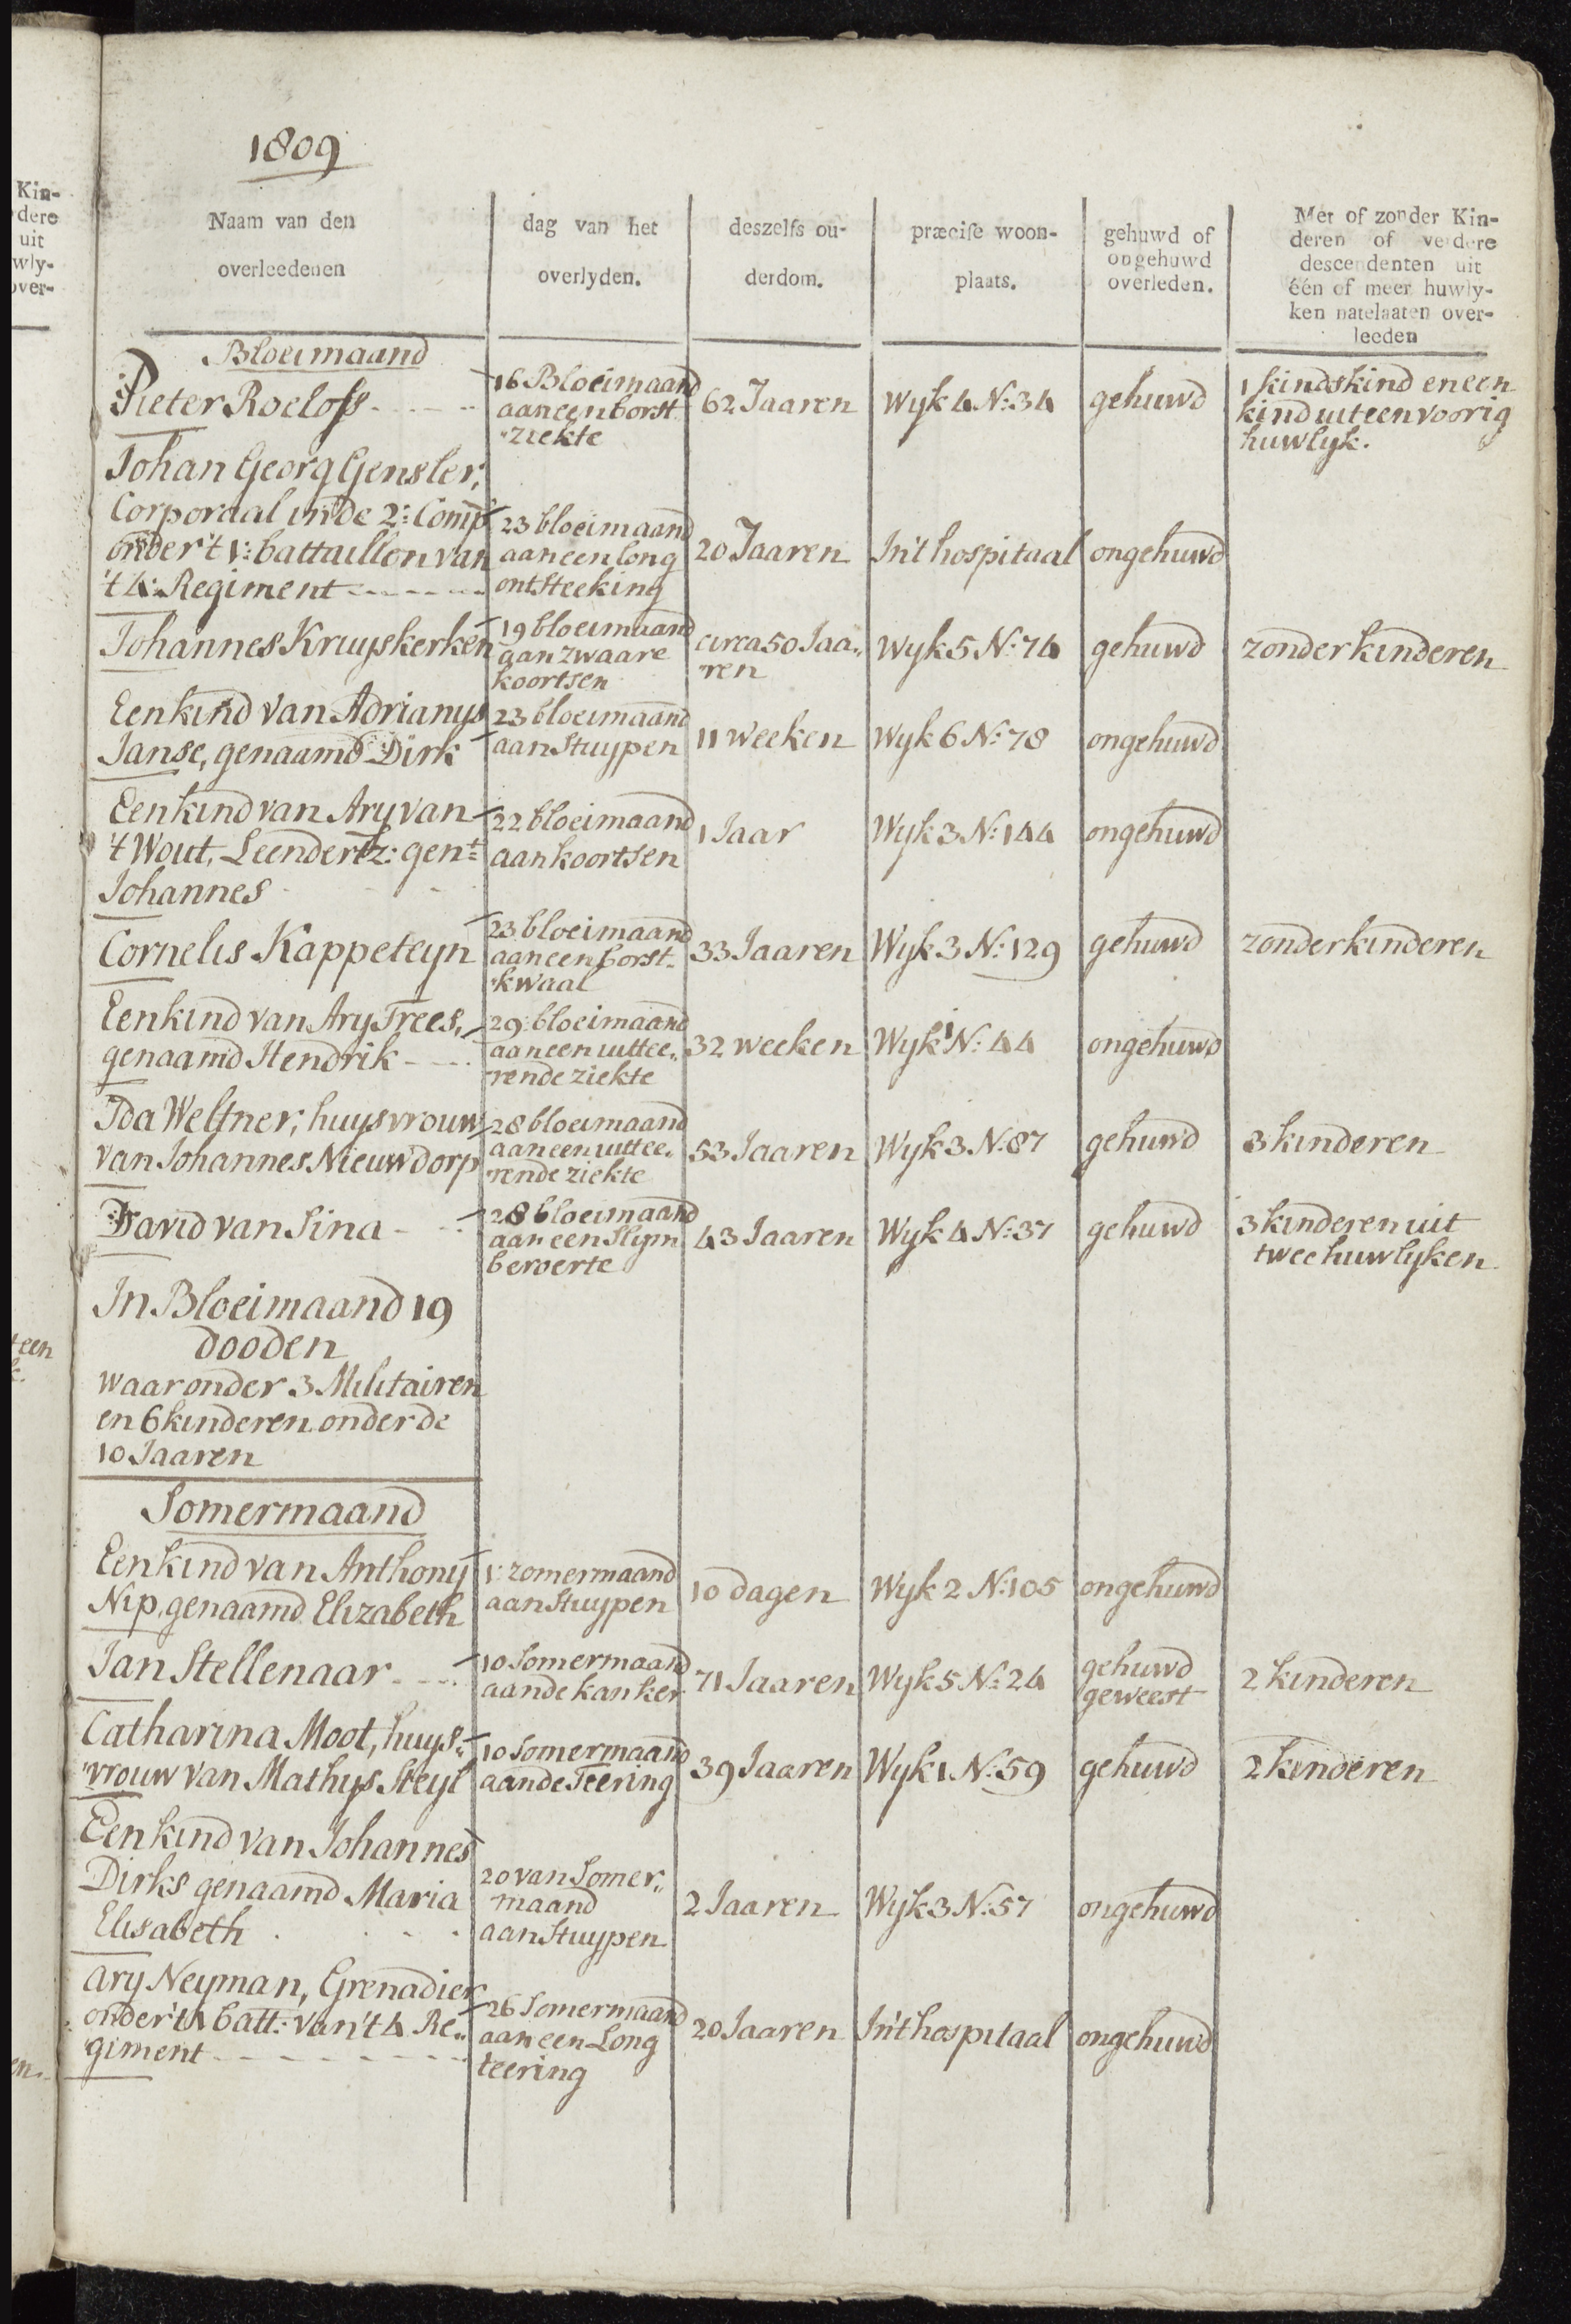 1809
Naam van den
overleedenen
dag van het
overlyden.
deszelfs ou-
derdom.
præcise woon-
plaats.
gehuwd of
ongehuwd
overleden.
Met of zonder Kin-
deren of verdere
descendenten uit
één of meer huwly-
ken natelaaten over-
leeden
Bloeimaand
Pieter Roelofs
16 Bloeimaand
aan een borst
ziekte
62 Jaaren
Wyk 4 N: 34
gehuwd
1 kindskind en een
kind uit een voorig
huwlyk.
Johan Georg Gensler,
Corporaal in de 2: Comp
onder 't 1: battaillon van
't 4: Regiment
23 bloeimaand
aan een long
ontsteeking
20 Jaaren
In't hospitaal
ongehuwd
Johannes Kruyskerken
19 bloeimaand
aan zwaare
koortsen
circa 50 Jaa„
„ren
Wyk 5 N: 74
gehuwd
zonder kinderen
Een kind van Adrianus
Janse, genaamd Dirk
23 bloeimaand
aan Stuypen
11 weeken
Wyk 6 N: 78
ongehuwd
Een kind van Ary van
't Wout, Leendertz: gent
Johannes
22 bloeimaand
aan koortsen
1 Jaar
Wyk 3 N: 144
ongehuwd
Cornelis Kappeteyn
23 bloeimaand
aan een borst-
kwaal
33 Jaaren
Wyk 3 N: 129
gehuwd
zonder kinderen
Een kind van Ary Trees,
genaamd Hendrik
29 bloeimaand
aan een uittee„
„rende ziekte
32 weeken
Wyk 1 N: 44
ongehuwd
Ida Weltner, huysvrouw
van Johannes Nieuwdorp
28 bloeimaand
aan een uittee„
„rende ziekte
53 Jaaren
Wyk 3 N: 87
gehuwd
3 kinderen
David van Sina
28 bloeimaand
aan een Slym
beroerte
43 Jaaren
Wyk 4 N: 37
gehuwd
3 kinderen uit
twee huwlyken
In Bloeimaand 19
dooden
waaronder 3 Militairen
en 6 kinderen onder de
10 Jaaren
Somermaand
Een kind van Anthony
Nip, genaamd Elizabeth
1: zomermaand
aan Stuypen
10 dagen
Wyk 2 N: 105
ongehuwd
Jan Stellenaar
10 Somermaand
aan de kanker
71 Jaaren
Wyk 5 N: 24
gehuwd
geweest
2 kinderen
Catharina Moot, huys„
„vrouw van Mathys Steyl
10 Somermaand
aan de Teering
39 Jaaren
Wyk 1 N: 59
gehuwd
2 kinderen
Een kind van Johannes
Dirks genaamd Maria
Elisabeth
20 van Somer„
maand
aan Stuypen
2 Jaaren
Wyk 3 N: 57
ongehuwd
Ary Neyman, Grenadier
onder 't 1 batt: van 't 4 Re„
„giment
26 Somermaand
aan een Long
teering
20 Jaaren
In't hospitaal
ongehuwd